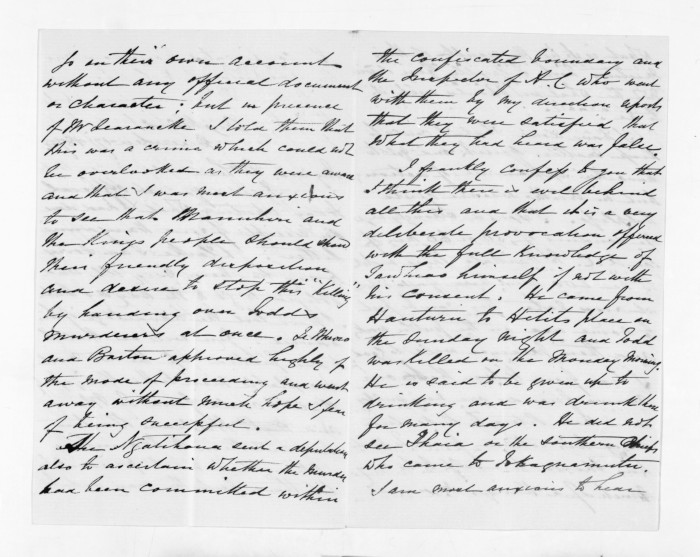 go on their own account
without any official document
or character; but in presence
of Mr Searancke I told them that
this was a crime which could not
be overlooked as they were aware
and that I was most anxious
to see that Manuhiri and
the Kings people should show
their friendly disposition
and desire to stop this "Killing"
by handing over Todds
murderers at once. Te Wheoro
and Barton approved highly of
the mode of proceeding and went
away without much hope I fear
of being successful.
The Ngatihaua sent a deputation
also to ascertain whether the murder
had been committed within
the confiscated boundary and
the Inspector of A.C. who went
with them by my direction reports
that they were satisfied that
what they had heard was false
I frankly confess to you that
I think there is evil behind
all this and that it is a very
deliberate provocation offered
with the full knowledge of
Tawhiao himself if not with
his consent. He came from
Hauturu to Hitiri's place on
the Sunday night and Todd
was killed on the Monday morning.
He is said to be given up to
drinking and was drunk there
for many days. He did not
see Ihaia or the southern Chiefs
who came to Tokagnamutu.
I am most anxious to hear